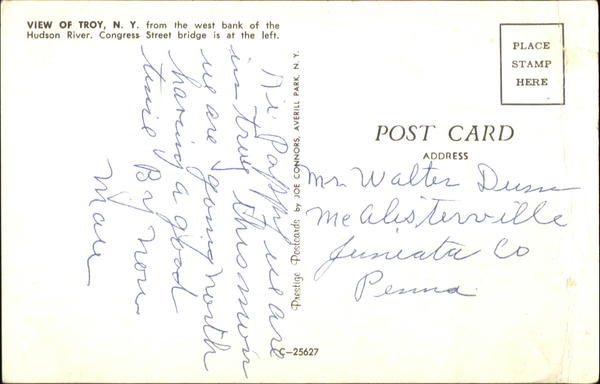 VIEW OF TROY, N. Y. from the west bank of the
Hudson River. Congress Street bridge is at the left.
Hi Pappy we are
in troy this
we are going north
having a good
time By now
Prestige Postcards by JOE CONNORS, AVERILL PARK, N. Y.
C-25627
PLACE
STAMP
HERE
POST CARD
ADDRESS
Mr. Walter Dunn
McAlisterville
Juniata Co
Penna.